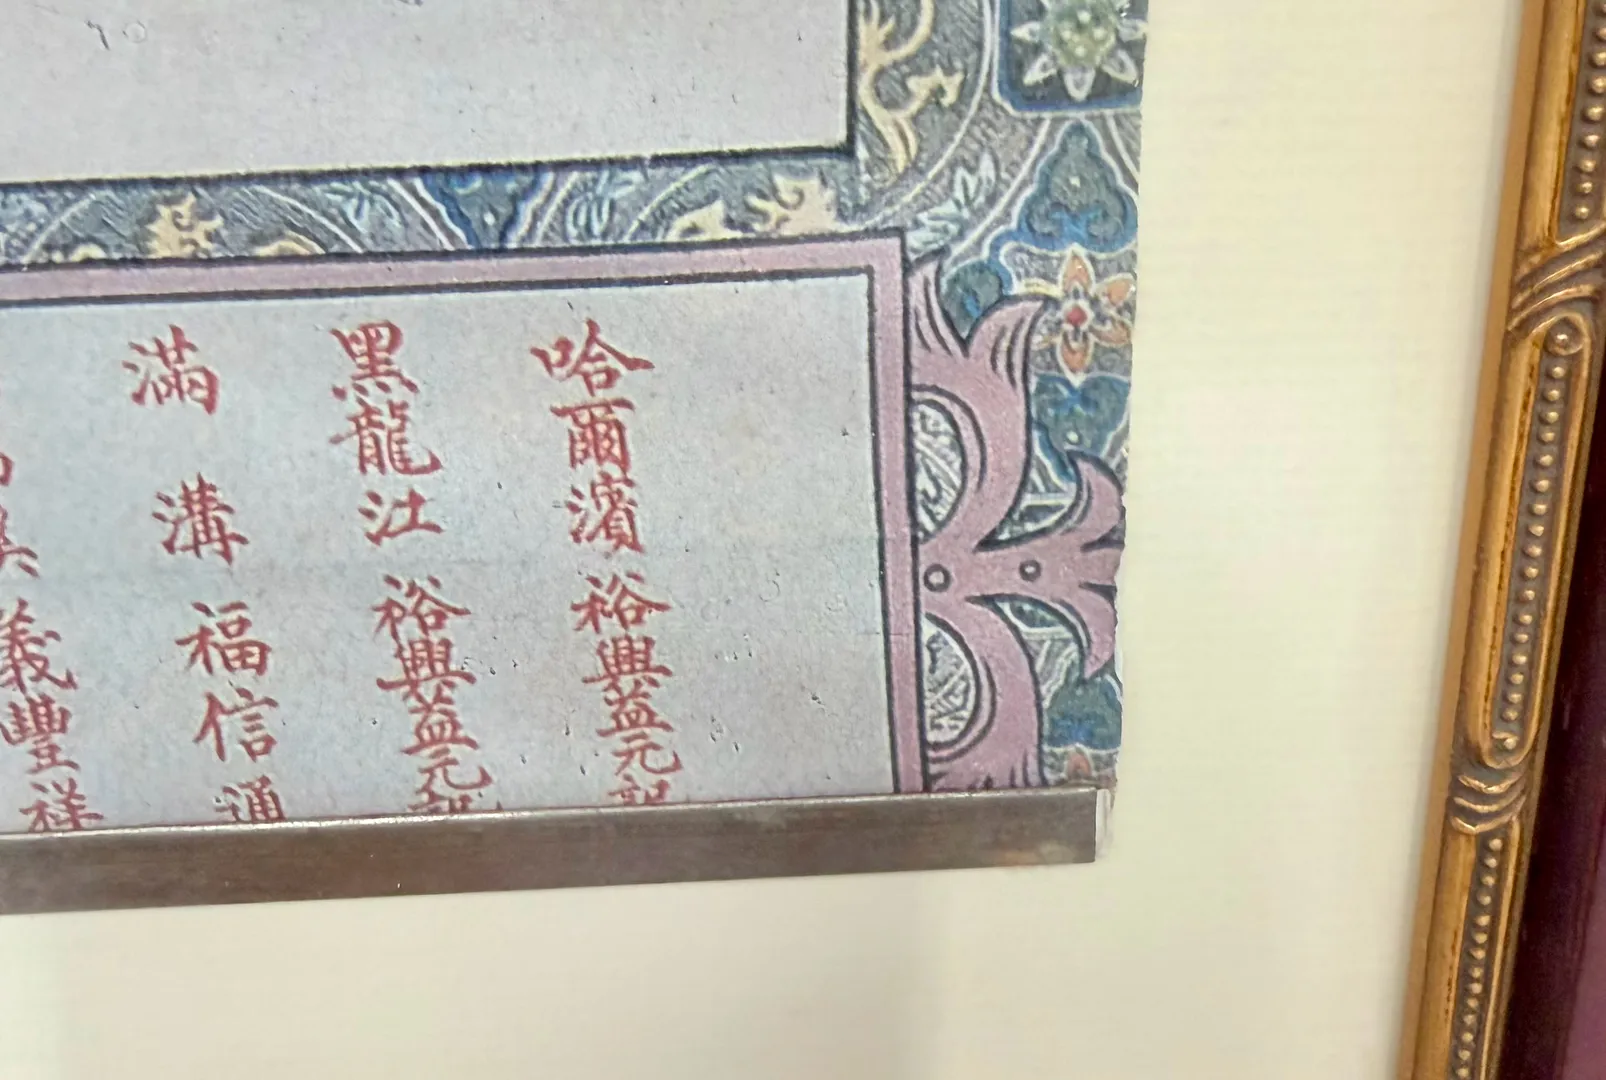 哈爾濱裕興益元記
黑龍江裕興益元記
滿溝福信通
義豐祥